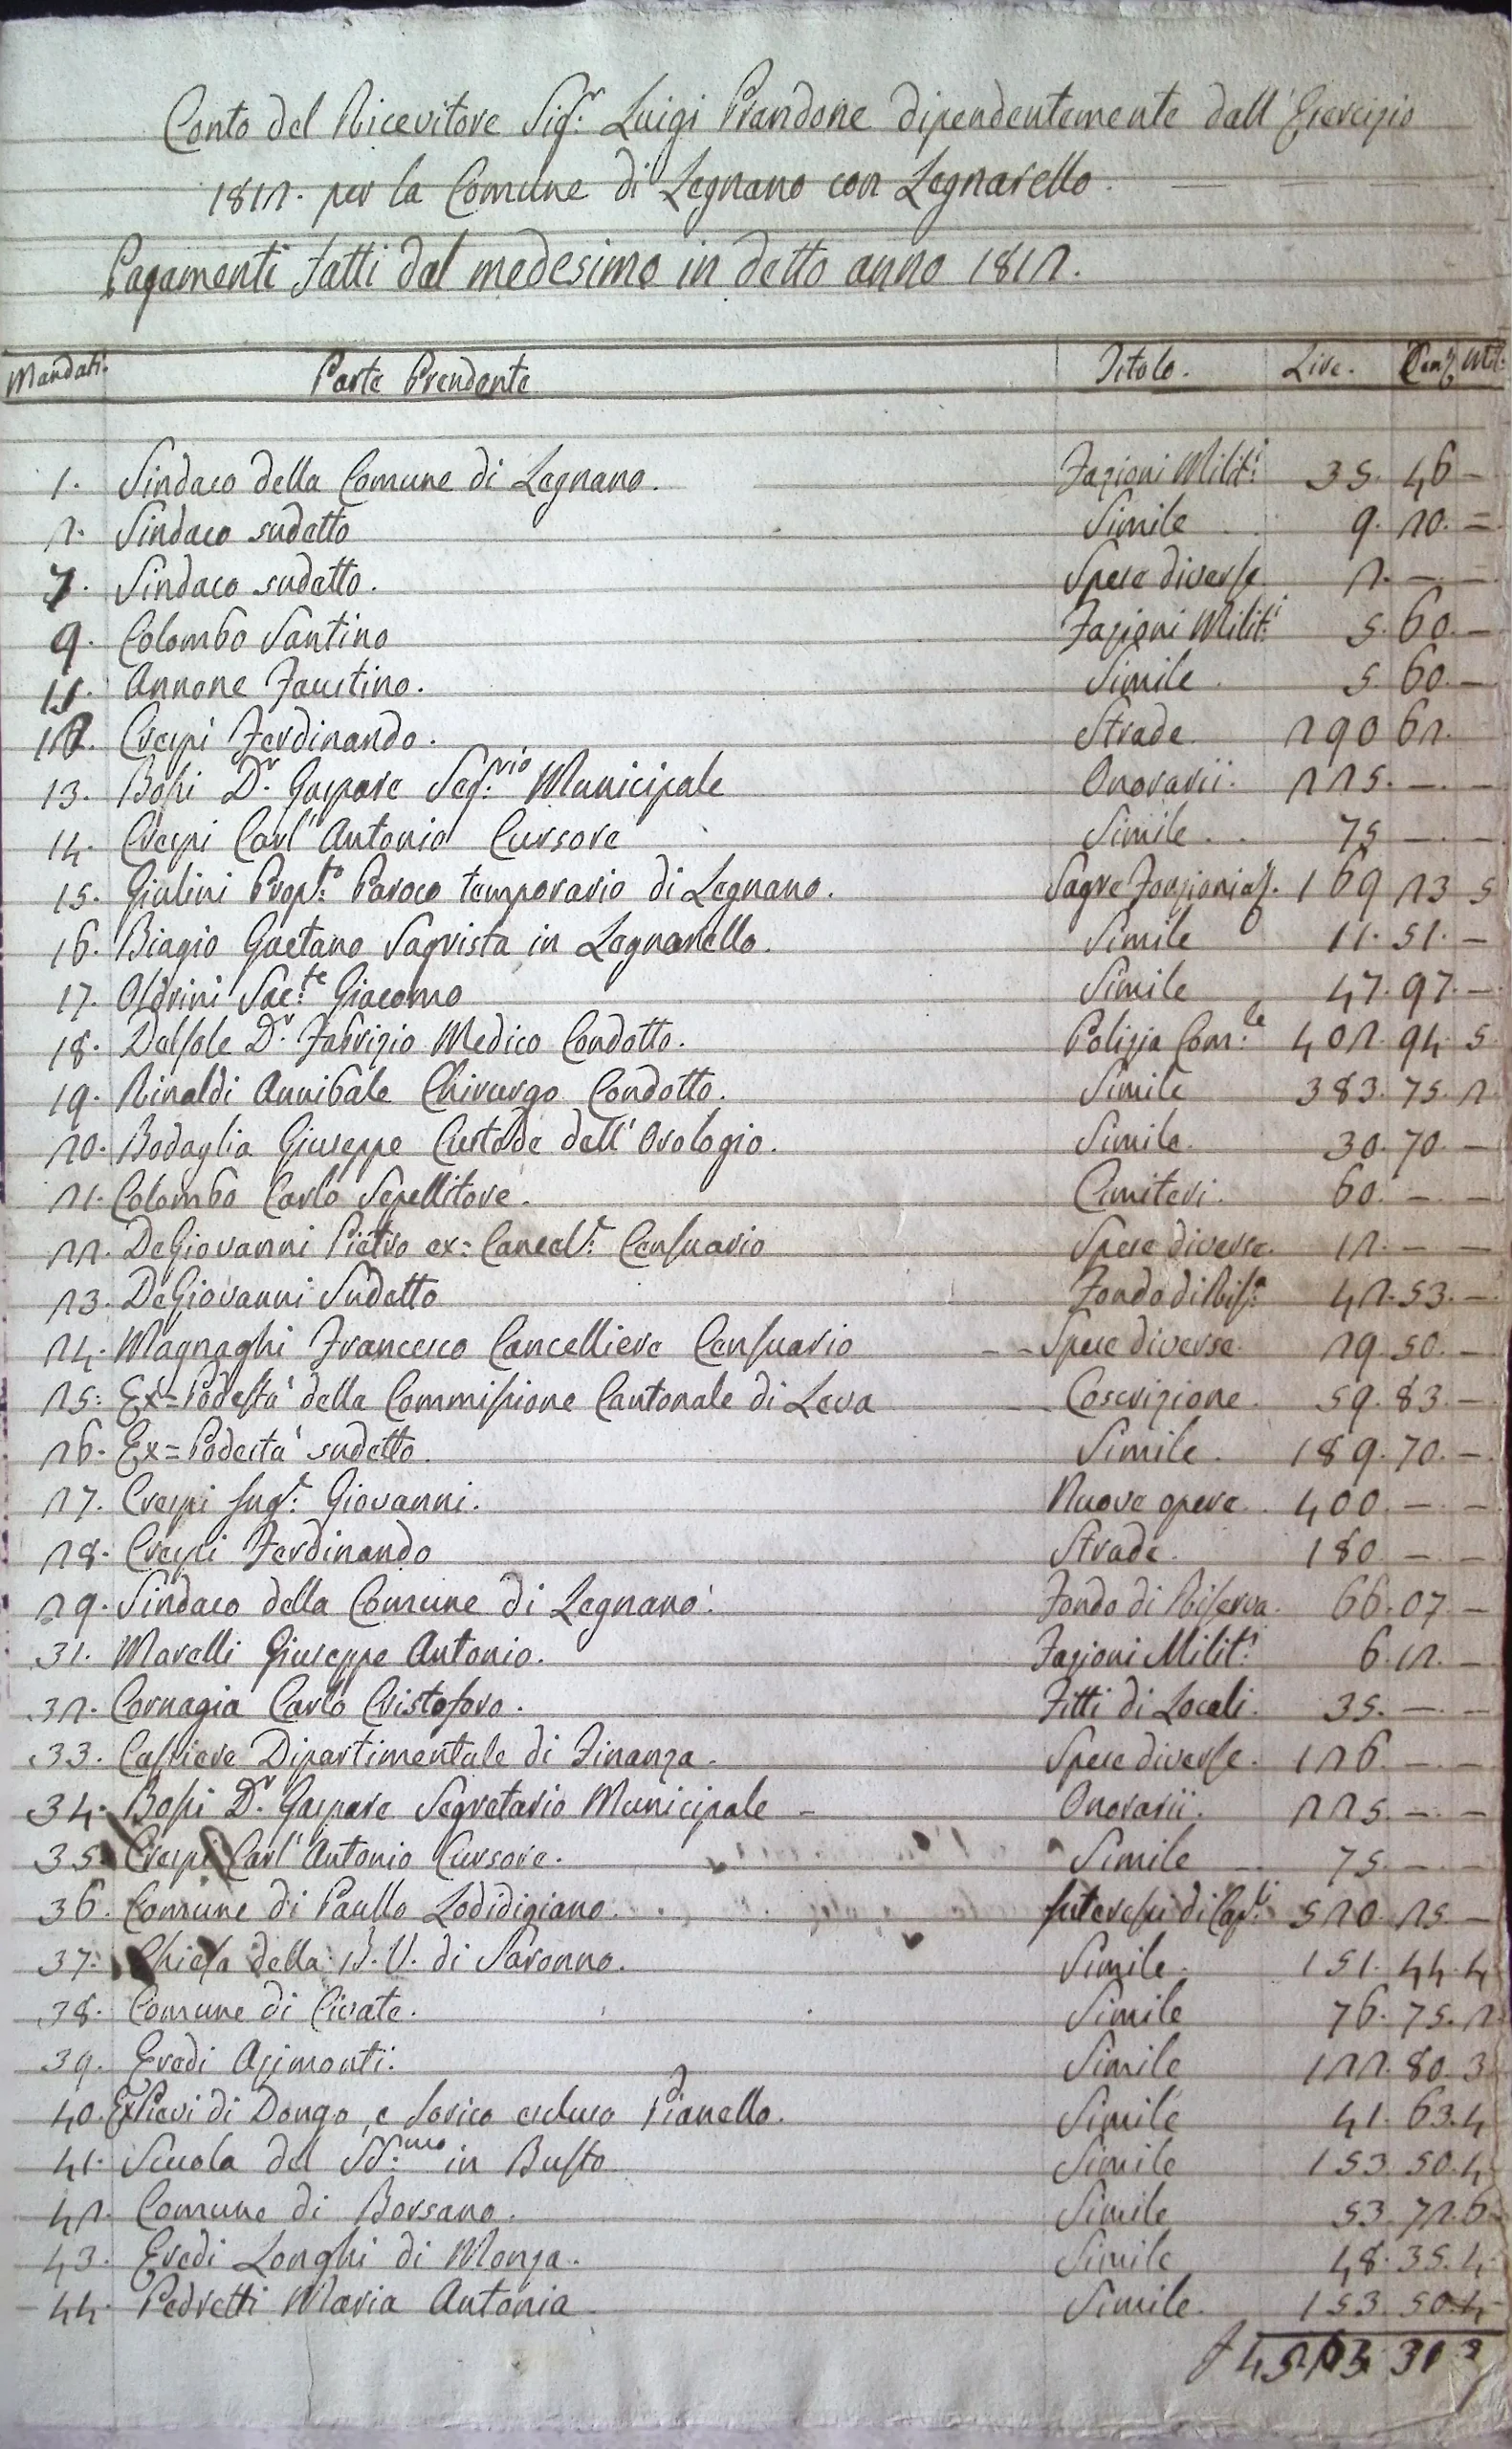 Conto del Ricevitore Sig.r Luigi Prandone dipendentemente dall'Esercizio
1812. per la Comune di Legnano con Legnarello.
Pagamenti fatti dal medesimo in detto anno 1812.
Mandati. Parte Prendente Titolo. Lire. Cent. Mil.
1. Sindaco della Comune di Legnano. Fazioni Milit.i 35. 46 -
2. Sindaco sudetto Simile 9. 20. =
7. Sindaco sudetto. Spese diverse 2. - -
9. Colombo Santino Fazioni Milit.i 5. 60. -
11. Annone Faustino. Simile. 5. 60. -
12. Crespi Ferdinando. Strade 290 62.
13. Bossi D.r Gaspare Seg.rio Municipale Onorarii. 225. - -
14. Crespi Carl'Antonio Cursore Simile. 75 - -
15. Giulini Prop.to Paroco temporario di Legnano. Sagre Fonzioni 169 23 5
16. Biagio Gaetano Sagrista in Legnarello. Simile 11. 51. -
17. Oldrini Sac.te Giacomo Simile 47. 97. -
18. Delsole D.r Fabrizio Medico Condotto. Polizia Com.le 402. 94. 5
19. Rinaldi Annibale Chirurgo Condotto. Simile 383. 75. 2
20. Bodaglia Giuseppe Custode dell'Orologio. Simile. 30. 70. -
21. Colombo Carlo Sepellitore. Cimiteri. 60. - -
22. DeGiovanni Pietro ex= Cancel.r Censuario Spese diverse. 12. - -
23. DeGiovanni Sudetto Fondo di Ris.a 42. 53. -
24. Magnaghi Francesco Cancelliere Censuario Spese diverse. 29. 50. -
25. Ex=Podestà della Commissione Cantonale di Leva Coscrizione. 59. 83. -
26. Ex=Podestà sudetto. Simile. 189. 70. -
27. Crespi Ing.r Giovanni. Nuove opere. 400. - -
28. Crespi Ferdinando Strade. 180 - -
29. Sindaco della Comune di Legnano. Fondo di Riserva. 66. 07. -
31. Marelli Giuseppe Antonio. Fazioni Milit.i 6. 12. -
32. Cornagia Carlo Cristoforo. Fitti di Locali. 35. - -
33. Cassiere Dipartimentale di Finanza. Spese diverse. 126. - -
34. Bossi D.r Gaspare Segretario Municipale - Onorarii. 225. - -
35. Crespi Carl'Antonio Cursore. Simile 75. - -
36. Comune di Paullo Lodidigiano. Interessi di Cap.li 520. 25. -
37. Chiesa della B. V. di Saronno. Simile. 151. 44. 4
38. Comune di Civate. Simile 76. 75. 2
39. Eredi Azimonti. Simile 122. 80. 3
40. Ex Pievi di Dongo, e Sorico escluso Pianello. Simile 41. 63. 4
41. Scuola del SS.mo in Busto Simile 153. 50. 4
42. Comune di Borsano. Simile 53. 72. 6
43. Eredi Longhi di Monza. Simile 48. 35. 4
44. Pedretti Maria Antonia Simile. 153. 50. 4